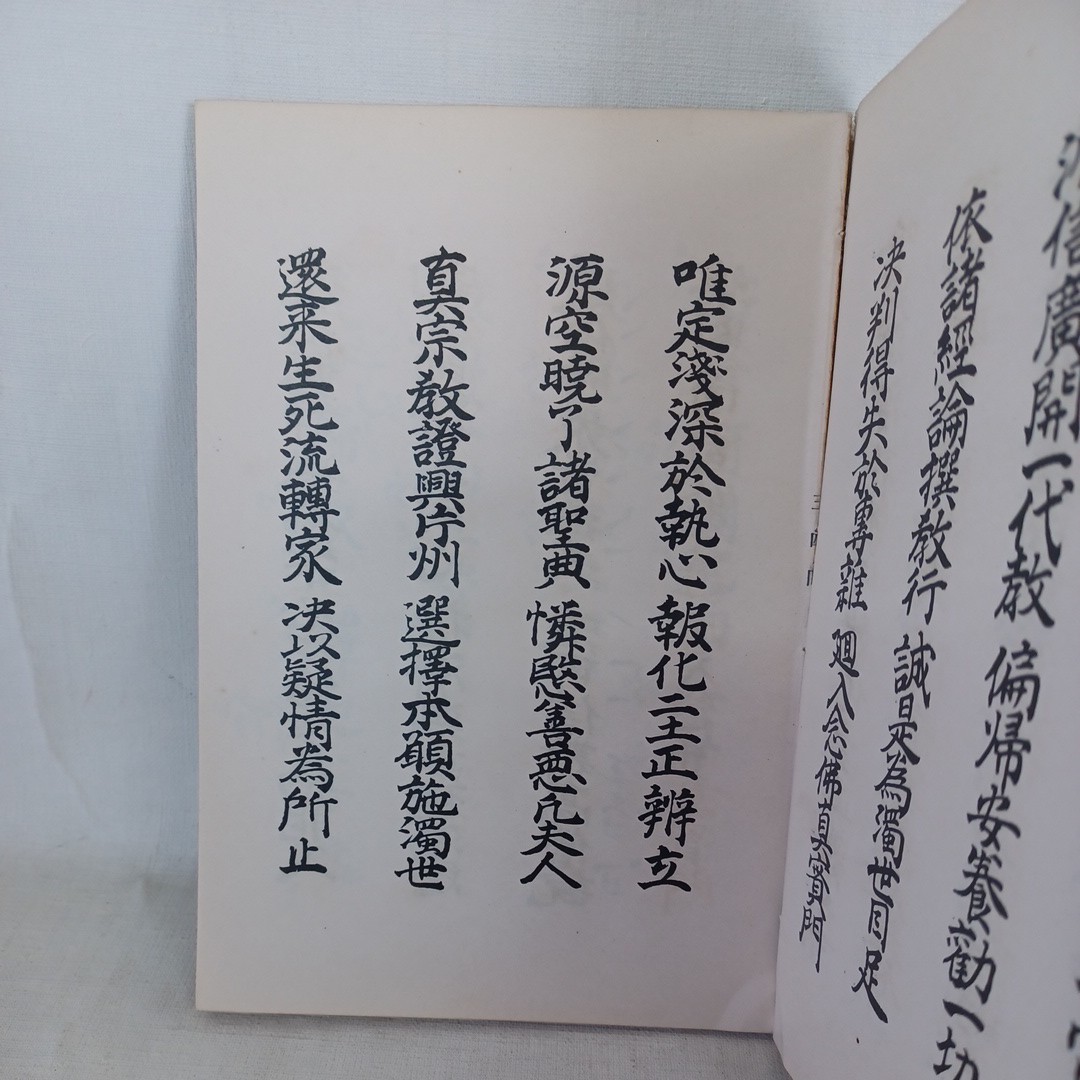 源信廣開一代教 偏帰安養勧一切
依諸經論撰教行 誠是為濁世目足
决判得失於專雜 廻入念佛真實門
唯定淺深於執心 報化二土正辨立
源空暁了諸聖典 憐愍善悪凡夫人
真宗教證興片州 選擇本願施濁世
還来生死流轉家 决以疑情為所止